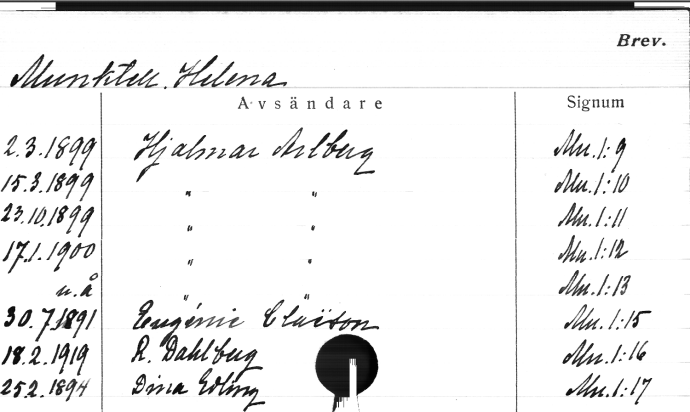 Brev.
Munktell, Helena
Avsändare Signum
2.3.1899 Hjalmar Arlberg Mu.1:9
15.3.1899 " " Mu.1:10
23.10.1899 " " Mu.1:11
17.1.1900 " " Mu.1:12
u.å " " Mu.1:13
30.7.1891 Eugénie Claëson Mu.1:15
18.2.1919 R. Dahlberg Mu.1:16
25.2.1894 Dina Edling Mu.1:17